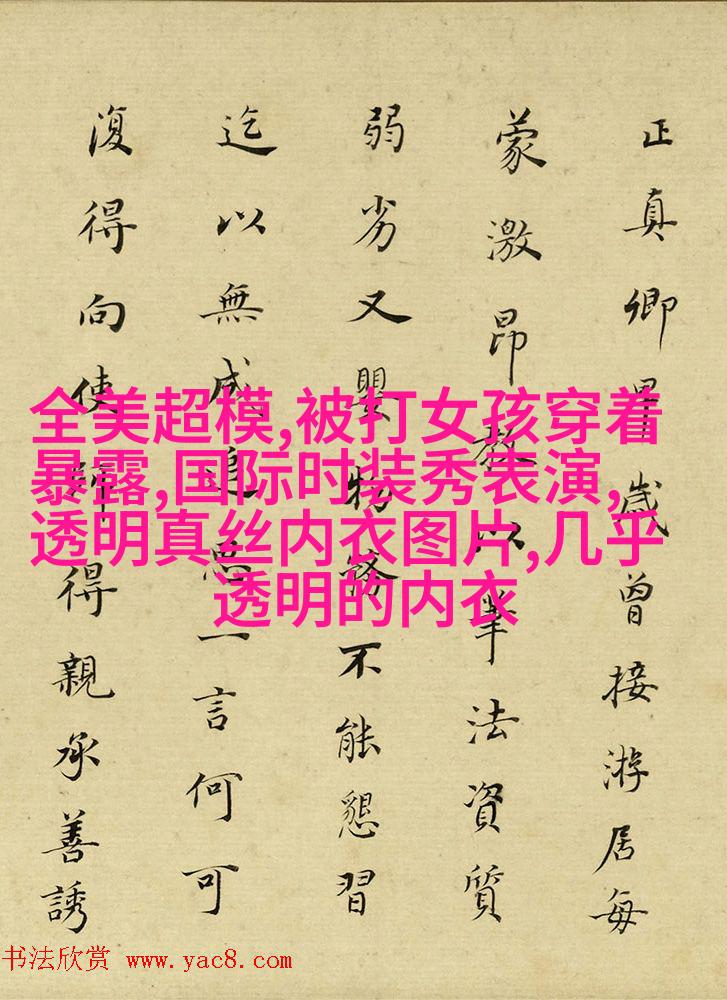 正真卿早歲曾接游居每
蒙激昂教以筆法資質
弱劣又嬰物務不能懇習
迄以無成追思一言何可
復得向使師得親承善誘
全美超模,被打女孩穿着
暴露,国际时装秀表演,
透明真丝内衣图片,几乎
透明的内衣
书法欣赏 www.yac8.com